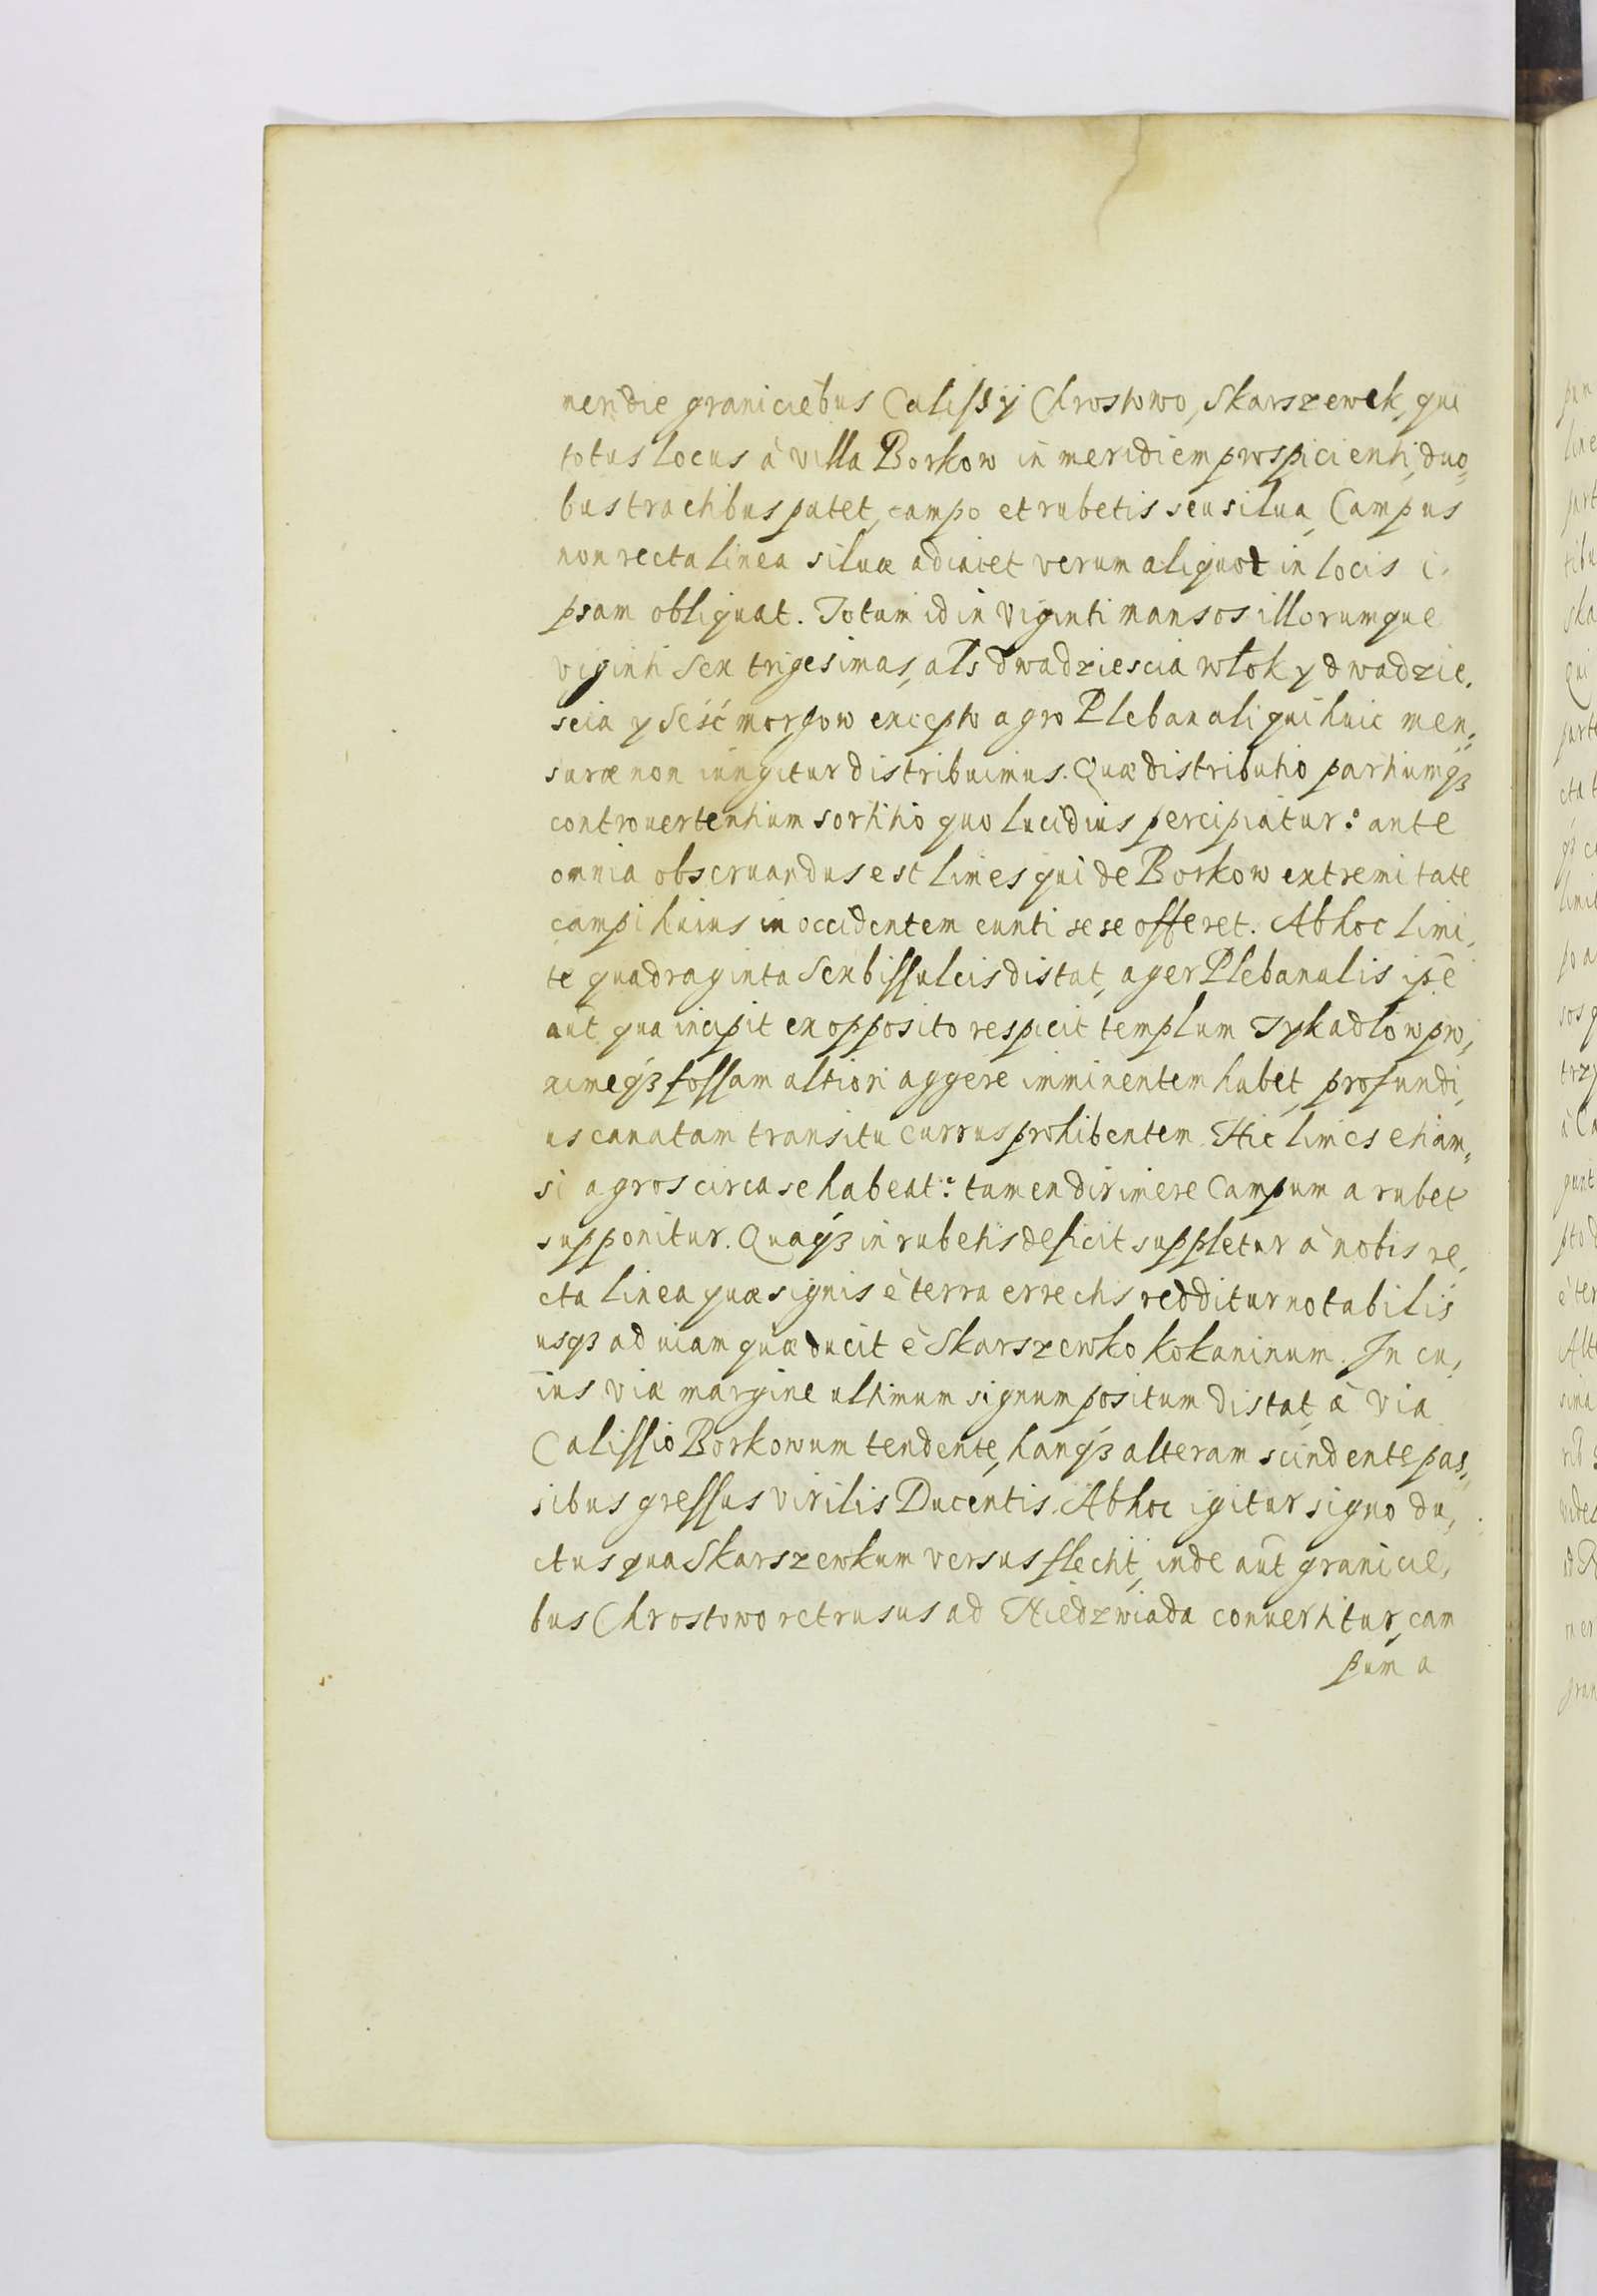 meridie graniciebus Calissÿ Chrostowo, Skarszewek, qui
totus locus à villa Borkow in meridiem prospicienti, duo-
bus tractibus patet, campo et rubetis seu silua, Campus
non recta linea siluæ adiacet verum aliquot in locis i-
psam obliquat. Totum id in viginti mansos illorumque
viginti sex trigesimas, als dwadziescia włok y dwadzie-
scia y sesć morgow excepto agro Plebanali qui huic men-
suræ non iungitur distribuimus. Quæ distributio partiumqȝ
controuertentium sortitio quo lucidius percipiatur: ante
omnia obseruandus est limes qui de Borkow extremitate
campi huius in occidentem eunti sese offeret. Ab hoc limi-
te quadraginta sex bissulcis distat, ager Plebanalis ipē
aūt qua incipit ex opposito respicit templum Tykadłow pro-
ximeqȝ fossam altiori aggere imminentem habet, profundi-
us canatam transitu currus prohibentem. Hic limes etiam-
si agros circa se habeat: tamen dirimere Campum a rubet
supponitur. Quaqȝ in rubetis deficit suppletur à nobis re-
cta linea quæ signis è terra errectis redditur notabilis
usqȝ ad uiam quæ ducit è Skarszewko kokaninum. In cu-
ius viæ margine ultimum signum positum distat, à via
Calissio Borkowum tendente, hanqȝ alteram scindente pas-
sibus gressus virilis Ducentis. Ab hoc igitur signo du-
ctus qua Skarszewkum versus flectit, inde aūt granicie-
bus Chrostowo retrusus ad Niedzwiada conuertitur, cam
pum a